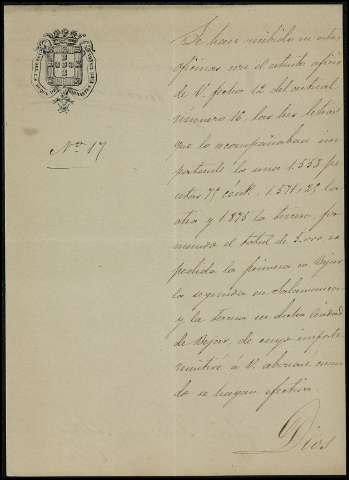 Se han recibido en estas
oficinas con el atento oficio
de V. fecha 12 del actual
número 16, las tres letras
que lo acompañaban im
portante la una 1.553 pe
setas 75 cént. 1.571,25 la
otra y 1.875 la tercera, for
mando el total de 5.000 es
pedida la primera en Bejar
la segunda en Salamanca
y la tercera en dicha Ciudad
de Bejar, de cuyo importe
remitiré á V. abonaré cuan
do se hagan efectiva
Nº 17
Dios